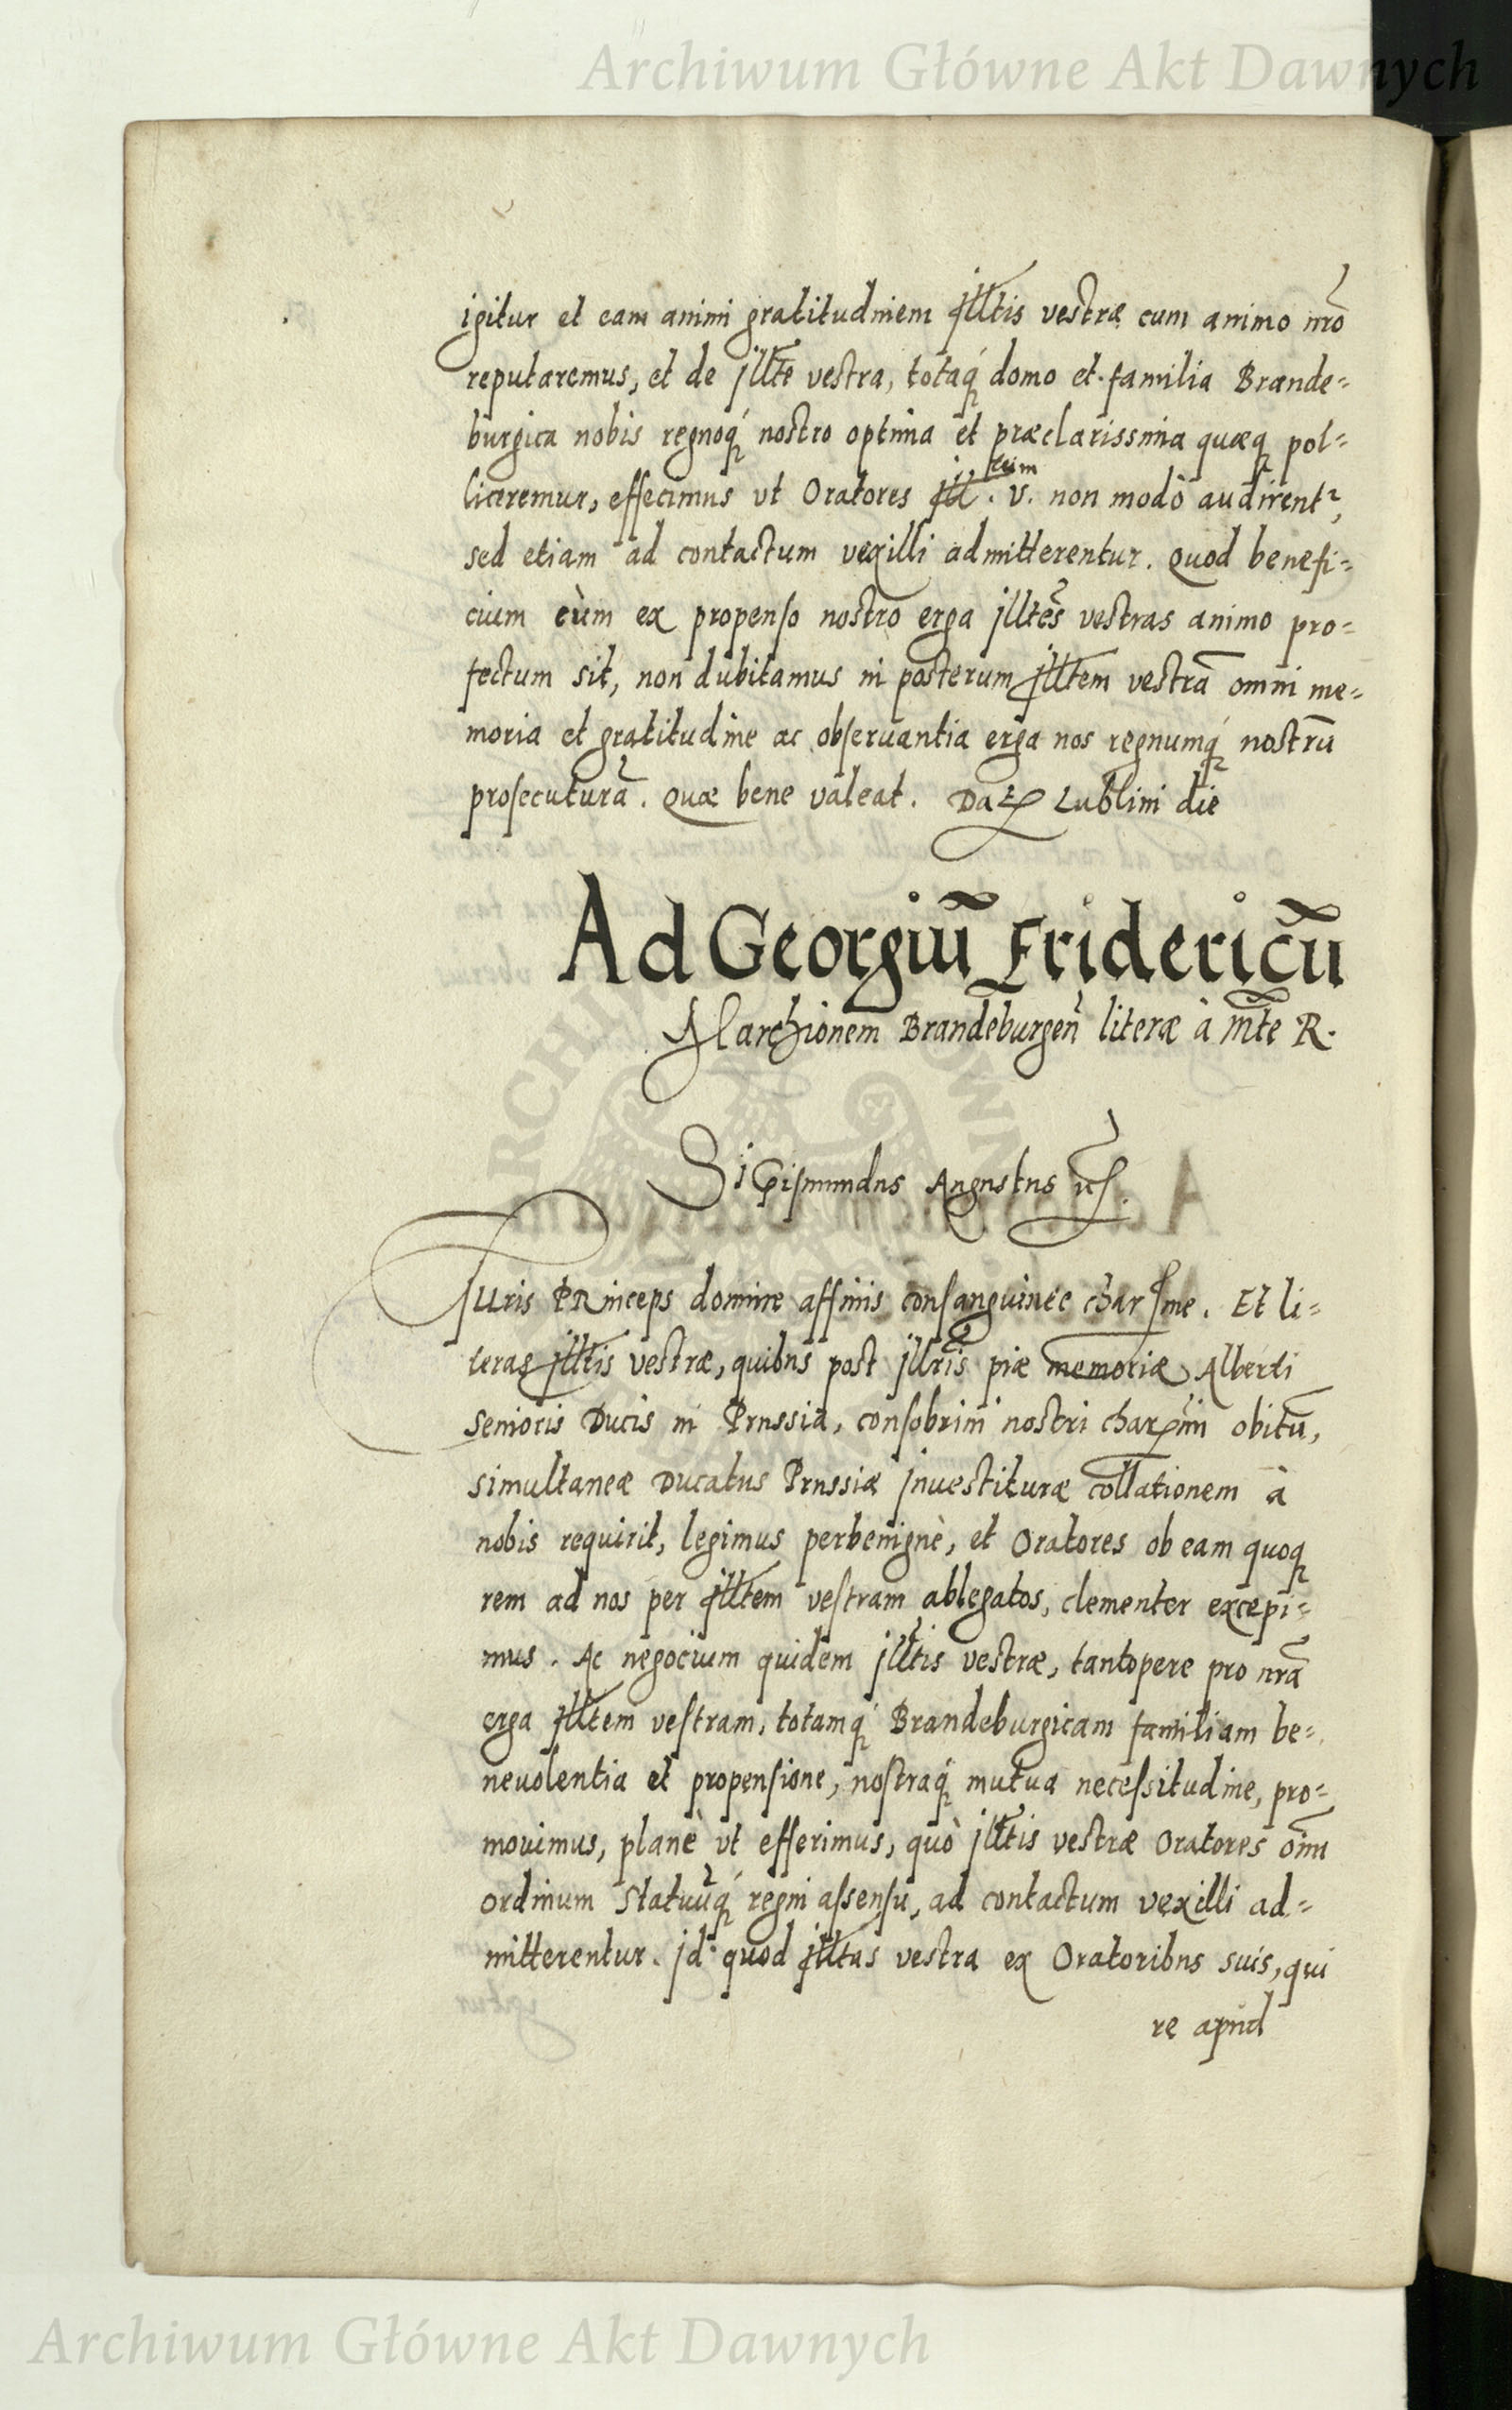 Archiwum Główne Akt Dawnych
igitur et eam animi gratitudinem Jlltis vestræ cum animo nrō
reputaremus, et de Jllte vestra, totaq́ domo et familia Brande=
burgica nobis regnoq́ nostro optima et præclarissima quæq pol=
liceremur, effecimus vt Oratores Jll. rum v. non modò audirent²,
sed etiam ad contactum vexilli admitterentur. Quod benefi=
cium cùm ex propenso nostro erga Jlltes vestras animo pro=
fectum sit, non dubitamus in posterum Jlltem vestrā omni me=
moria et gratitudine ac obseruantia erga nos regnumq́ nostrū
prosecuturā. Quæ bene valeat. Dat Lublini die
Ad Georgiū Fridericū
Marchionem Brandeburgen̄ literæ à Mte R.
Sigismundus Augustus
Jllris Princeps domine affinis consanguinee charssme. Et li=
teras Jlltis vestræ, quibus post Jllris piæ memoriæ Alberti
senioris Ducis in Prussia, consobrini nostri charssimi obitū,
simultaneæ Ducatus Prussiæ Jnuestituræ collationem à
nobis requirit, legimus perbenignè, et Oratores ob eam quoq
rem ad nos per Jlltem vestram ablegatos, clementer excepi=
mus. Ac negocium quidem Jlltis vestræ, tantopere pro nrā
erga Jlltem vestram, totamq́ Brandeburgicam familiam be=
neuolentia et propensione, nostraq́ mutua necessitudine, pro=
mouimus, planè vt effecerimus, quò Jlltis vestræ Oratores oīm
ordinum Statuūq́ regni assensu, ad contactum vexilli ad=
mitterentur. Jd quod Jlltas vestra ex Oratoribus suis, qui
re apud
Archiwum Główne Akt Dawnych